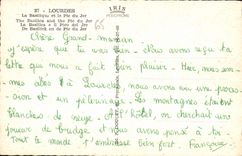 37 - LOURDES
La Basilique et le Pic du Jer
The Basilica and the Pic du Jer
La Basilica e il Pico del Jer
De Basiliek en de Pic du Jer
IRIS
Chère Grand-maman
J'espère que tu vas bien. Nous avons reçu ta
lettre qui nous a fait un plaisir. Hier, nous som-
mes allés à Lourdes, nous avons vu une proces-
sion et un pélerinage. Les montagnes étaient
blanches de neige. A l'hôtel, on cherchait une
joueur de bridge et nous avons pensé à toi
Tout le monde t'embrasse bien fort. Françoise